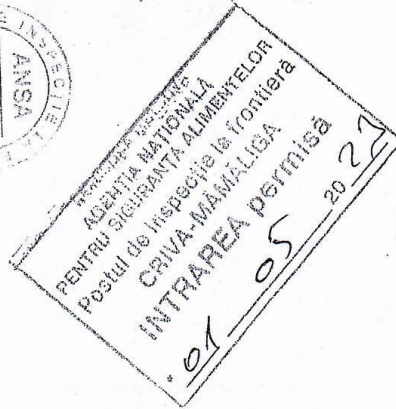 INSPECȚIE
ANSA
AGENȚIA NAȚIONALĂ
PENTRU SIGURANȚA ALIMENTELOR
Postul de inspecție la frontieră
CRIVA-MĂMĂLIGA
INTRAREA permisă
01 05 2022